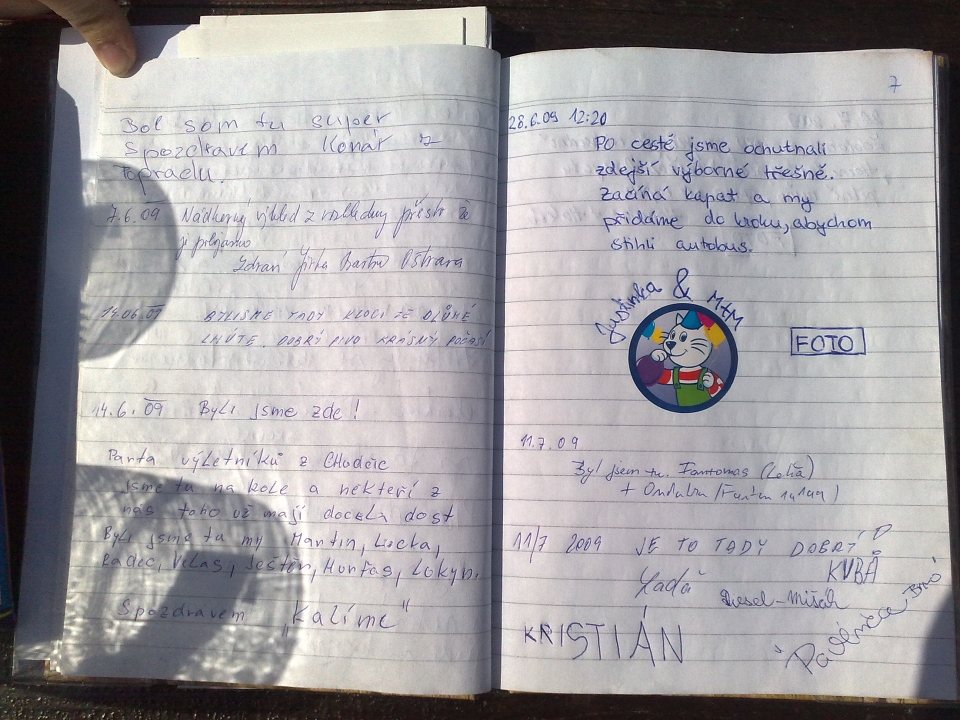 Bol som tu super
S pozdravem Konár z
Popradu.
7.6.09 Nádherný výhled z rozhledny přesto že
je
Zdraví Jirka Ostrava
14.06.09 BYLI SME TADY KLOCI ZE
LHÓTE. DOBRÝ PIVO KRÁSNÝ POČASÍ
14.6.09 Byli jsme zde!
Parta výletníků z CHudčic
jsme tu na kole a někteří z
nás toho už mají docela dost
Byli jsme tu my Martin, Lucka,
Radec, Ještěr, Huňas, Lokyn,
S pozdravem "Kalíme"
7
28.6.09 12:20
Po cestě jsme ochutnali
zdejší výborné třešně.
Začíná kapat a my
přidáme do kroku, abychom
stihli autobus.
Justinka & M+M
FOTO
11.7.09
Byl jsem tu. Fantomas
+
11/7 2009 JE TO TADY DOBRÝ
KUBA
Láďa
Diesel-Mišák
KRISTIÁN
Brno